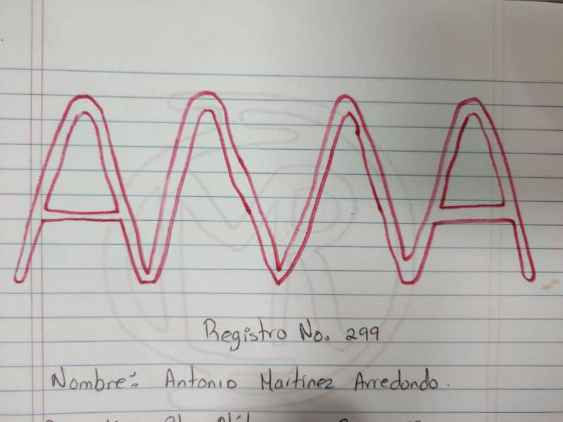 AMA
Registro No. 299
Nombre: Antonio Martinez Arredondo.